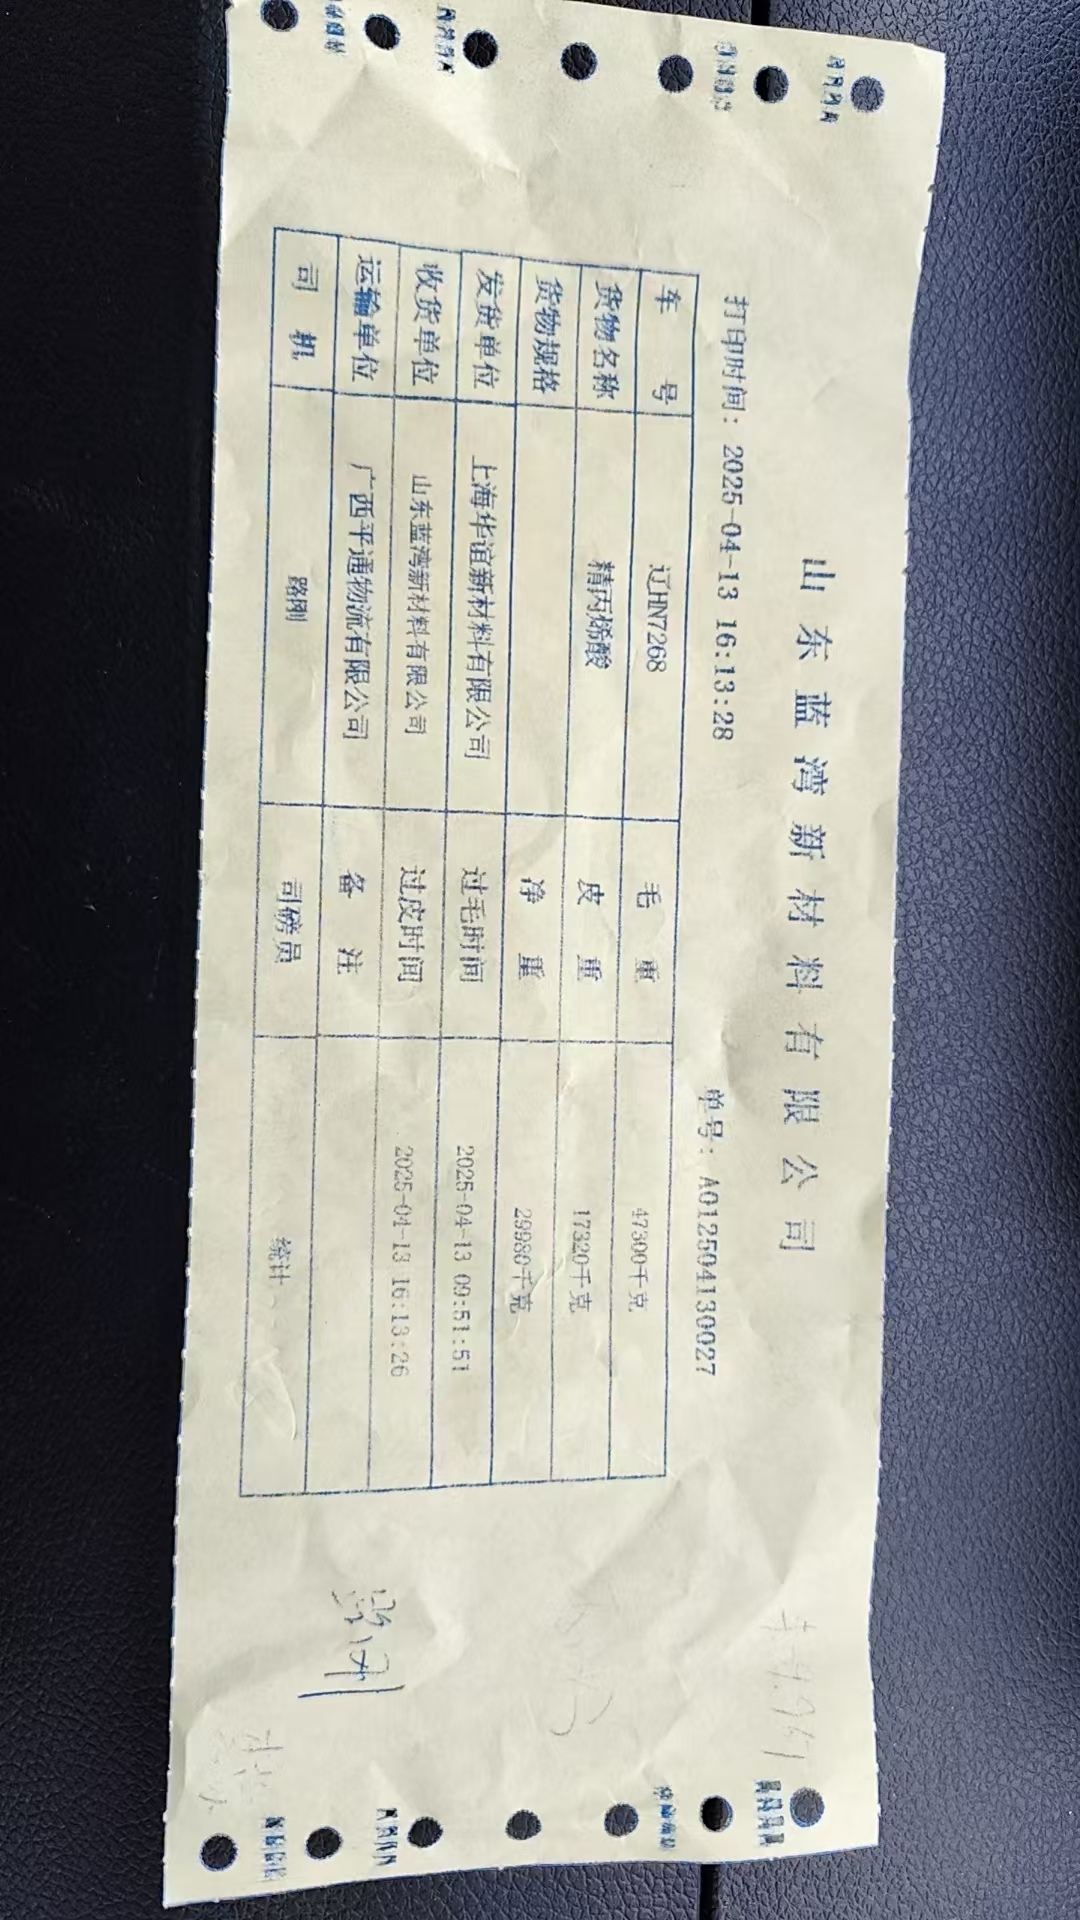 山东蓝湾新材料有限公司
打印时间：2025-04-13 16:13:28 单号：A012504130027
车号 辽HN7268 毛重 47300千克
货物名称 精丙烯酸 皮重 17320千克
货物规格 净重 29980千克
发货单位 上海华谊新材料有限公司 过毛时间 2025-04-13 09:51:51
收货单位 山东蓝湾新材料有限公司 过皮时间 2025-04-13 16:13:26
运输单位 广西平通物流有限公司 备注
司机 路刚 司磅员 统计